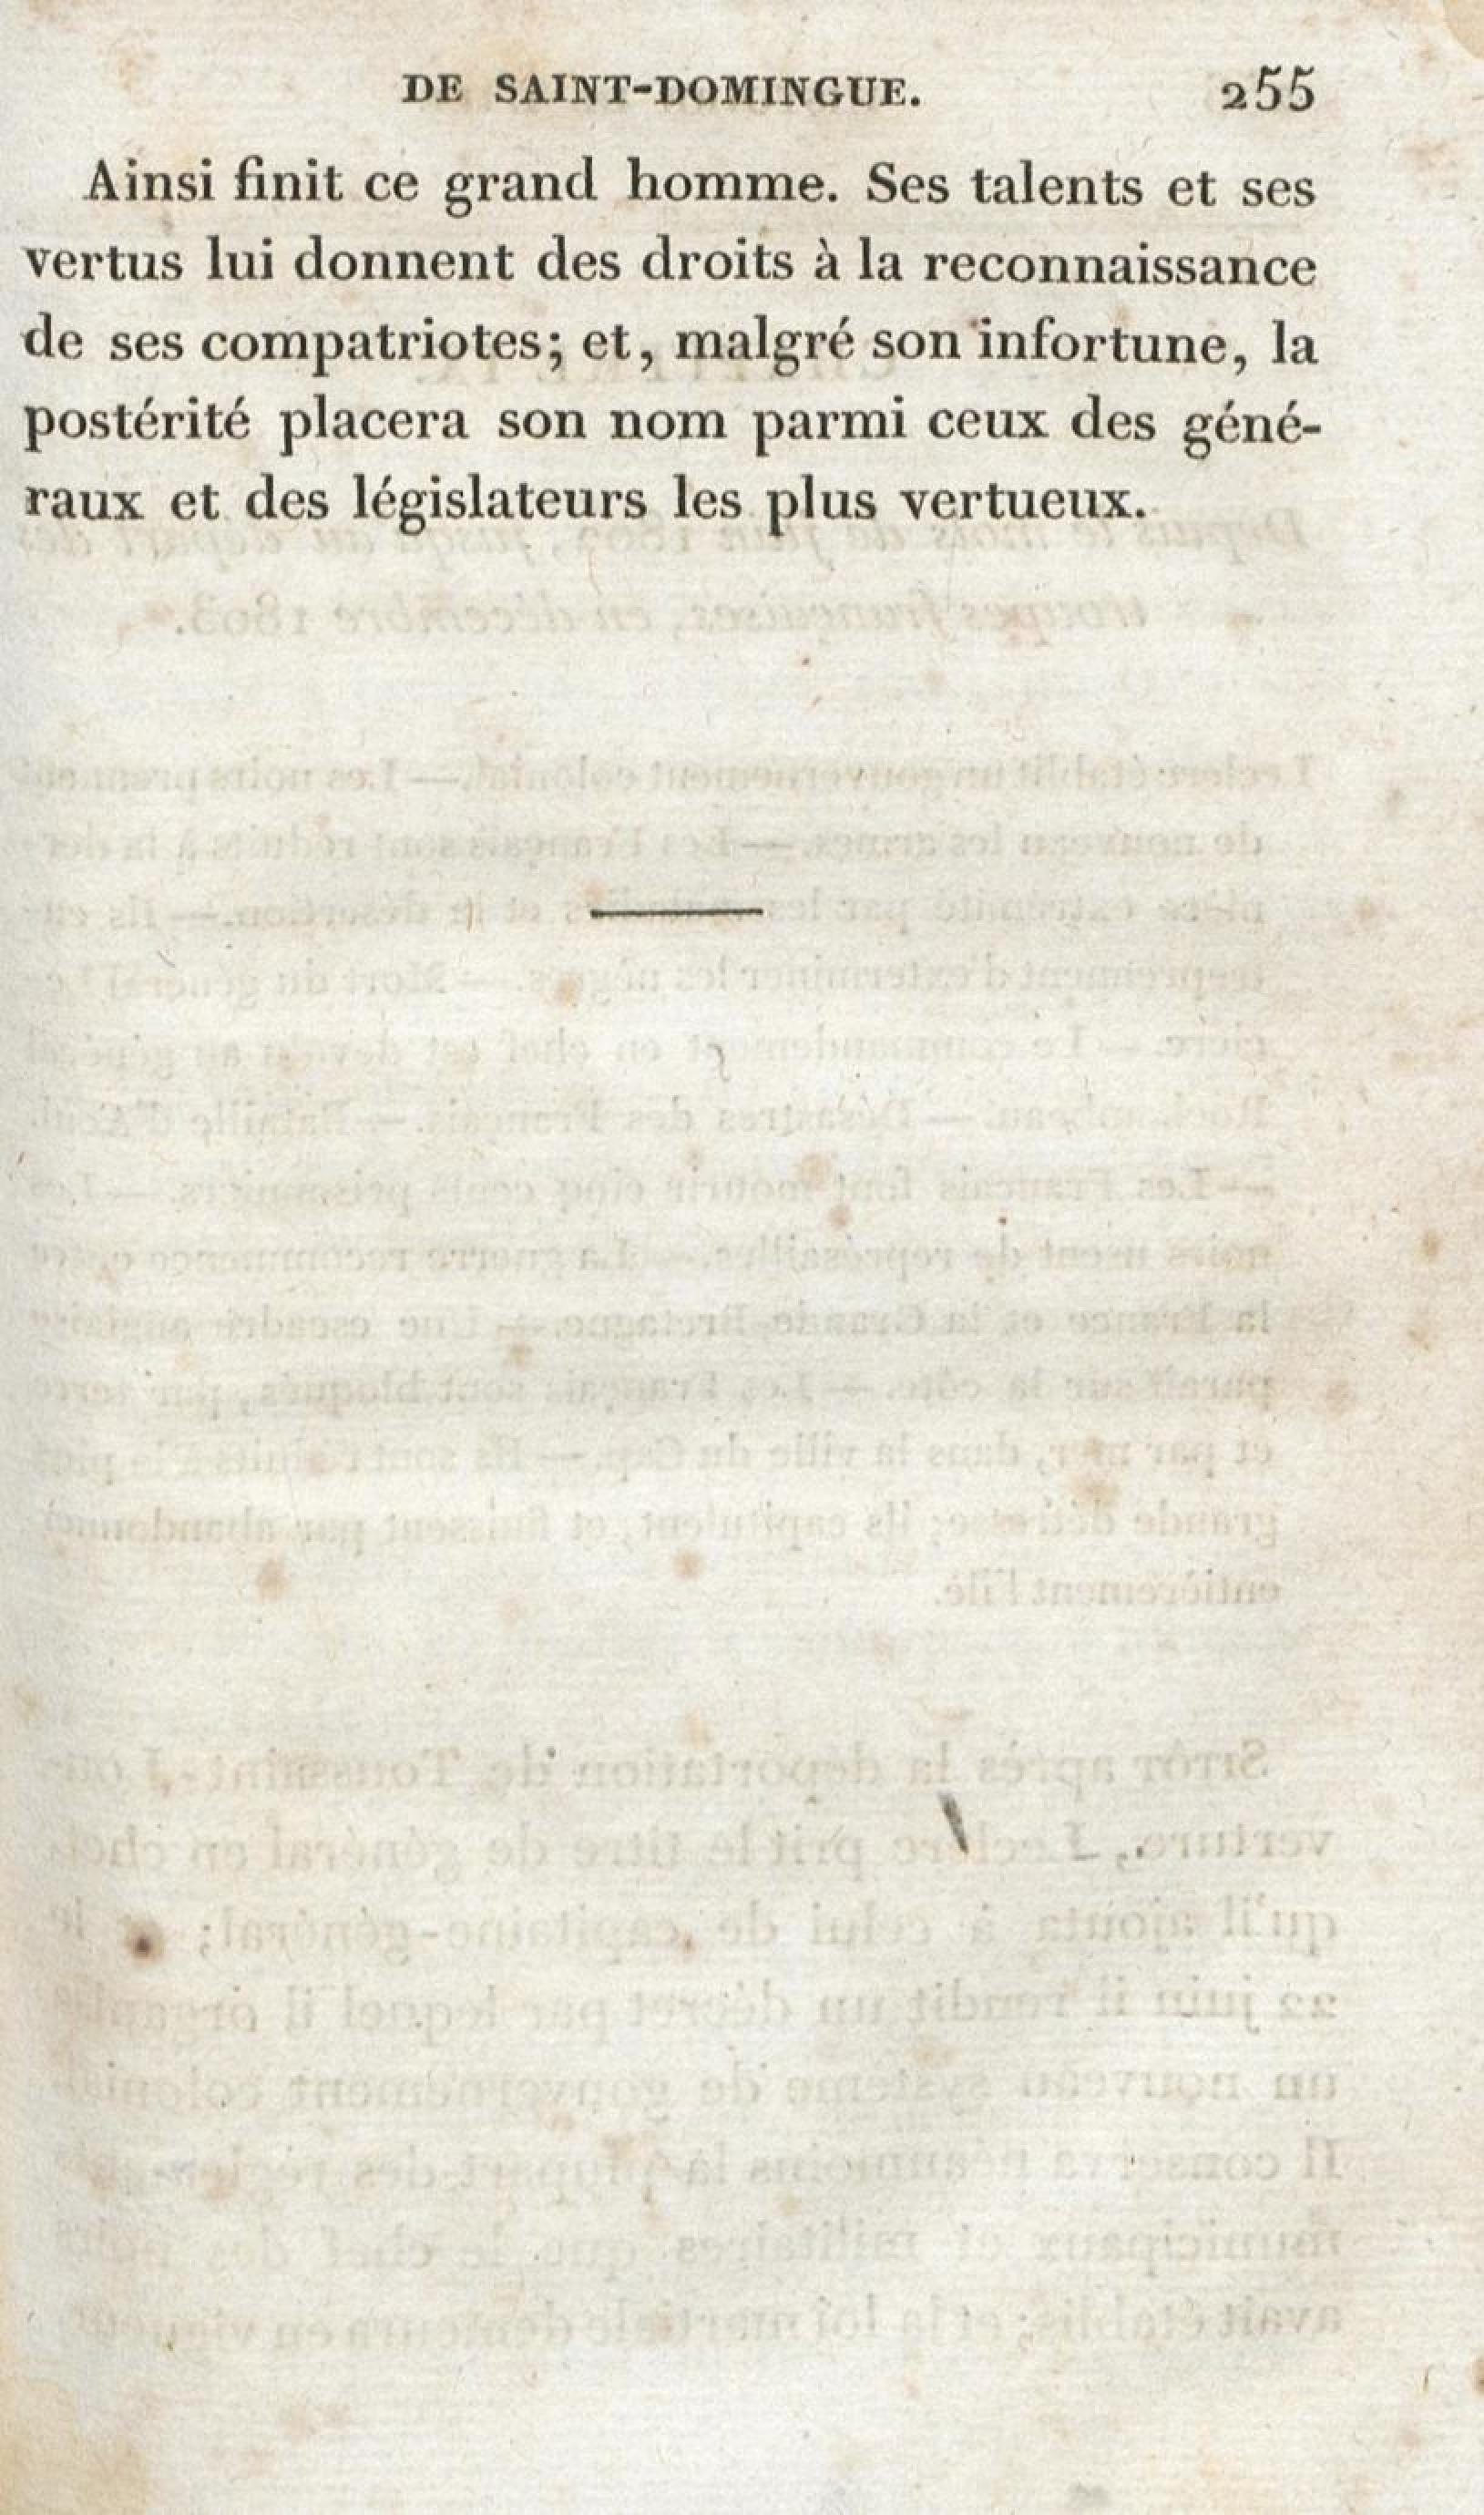 DE SAINT-DOMINGUE. 255
Ainsi finit ce grand homme. Ses talents et ses
vertus lui donnent des droits à la reconnaissance
de ses compatriotes; et, malgré son infortune, la
postérité placera son nom parmi ceux des géné-
raux et des législateurs les plus vertueux.